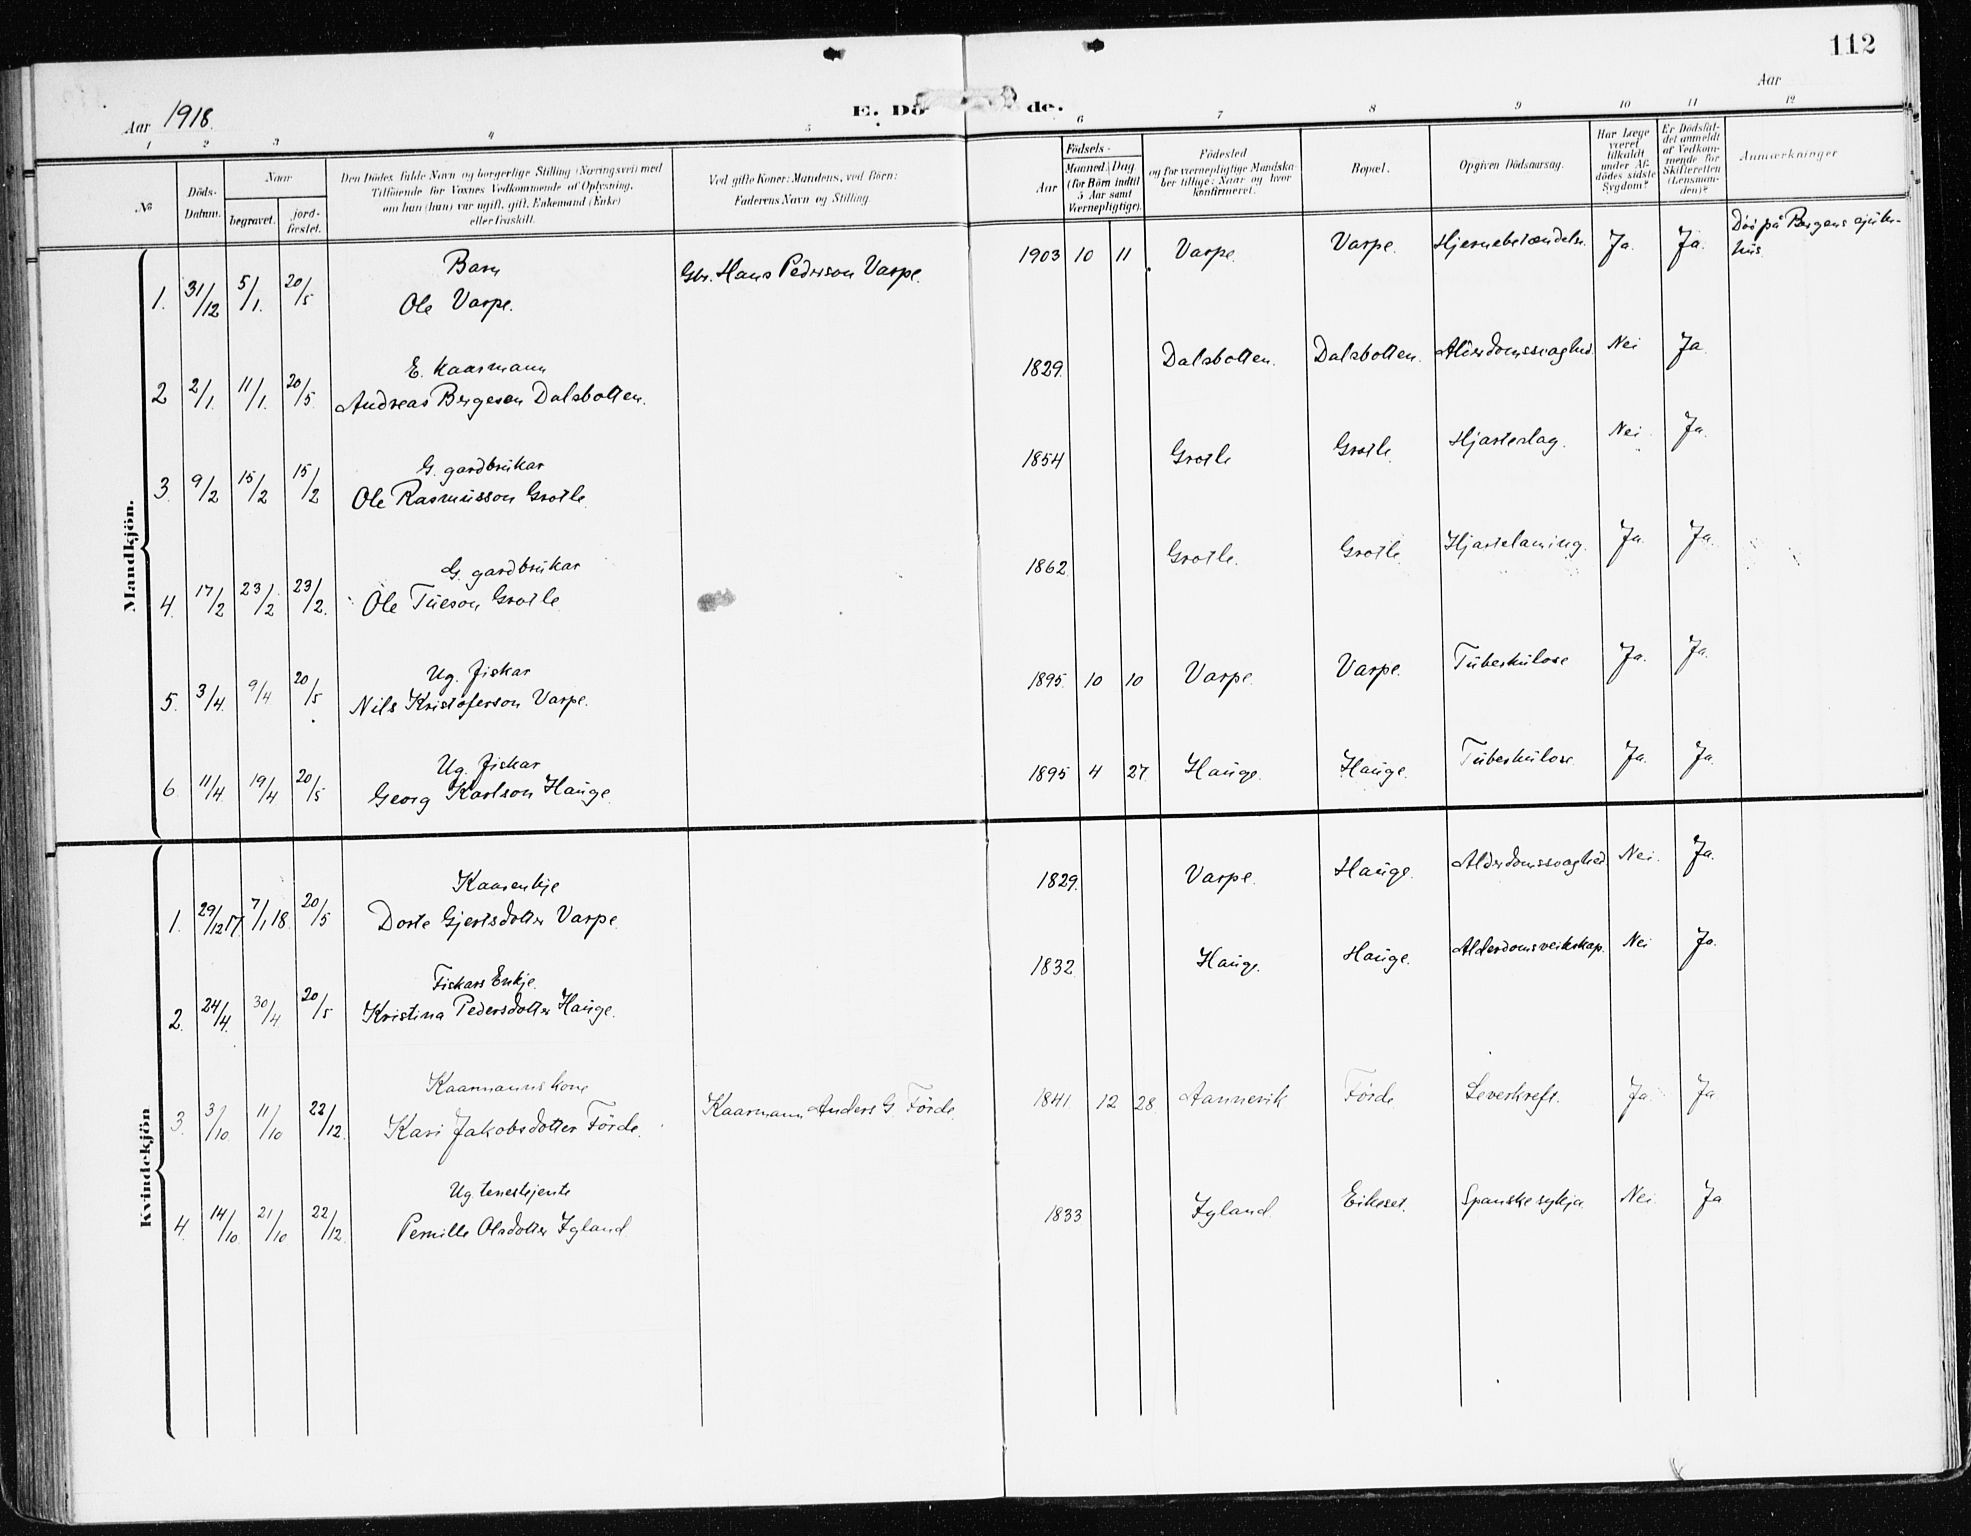 112
Aar 1918.
E. Dö de.
Aar
1 2 3 4 5 6 7 8 9 10 11 12
No
Döds-Datum.
Naar
begravet.
jord-fæstet.
Den Dödes fulde Navn og borgerlige Stilling (Næringsvei) med
Tilföiende for Voxnes Vedkommende af Oplysning,
om han (hun) var ugift, gift, Enkemand (Enke)
eller fraskilt.
Ved gifte Koner: Mandens, ved Börn:
Faderens Navn og Stilling
Födsels-
Aar
Maaned. Dag
(for Börn indtil
5 Aar samt
Værnepligtige).
Födested
og for værnepligtige Mandska
ber tillige: Naar og hvor
konfirmeret.
Bopæl.
Opgiven Dödsaarsag.
Har Læge
været
tilkaldt
under Af-
dödes sidste
Sygdom?
Er Dödsfal-
det anmeldt
af Vedkom-
mende for
Skifteretten
(Lensman-
den)?
Anmærkninger
Mandkjön.
1. 31/12 5/1. 20/5 Barn Ole Varpe. Gbr. Hans Pederson Varpe. 1903 10 11 Varpe. Varpe. Hjernebetændelse. Ja. Ja. Död på Bergens sjuke-
hus.
2 2/1. 11/1. 20/5. E. Kaarmann Andreas Bergeson Dalsbotten. 1829. Dalsbotten. Dalsbotten. Alderdomssvaghed. Nei Ja.
3. 9/2 15/2 15/2 G. gardbrukar Ole Rasmusson Grotle. 1854 Grotle Grotle. Hjarteslag. Nei. Ja.
4. 17/2 23/2 23/2. G. gardbrukar Ole Tueson Grotle. 1862. Grotle. Grotle. Hjartelaming. Ja. Ja.
5. 3/4. 9/4 20/5 Ug. fiskar Nils Kristoferson Varpe. 1895. 10 10 Varpe. Varpe. Tuberkulose Ja. Ja.
6. 11/4. 19/4 20/5 Ug. fiskar Georg Karlson Hauge. 1895 4 27. Hauge. Hauge. Tuberkulose. Ja. Ja.
Kvindekjön
1. 29/12 17. 7/1 18. 20/5 Kaarenkje Dorte Gjertsdotter Varpe. 1829. Varpe. Hauge. Alderdomssvaghed Nei. Ja.
2. 24/4. 30/4 20/5 Fiskars Enkje. Kristina Pedersdotter Hauge. 1832. Hauge. Hauge. Alderdomsveikskap. Nei Ja.
3. 3/10. 11/10 22/12. Kaarmanns kone Kari Jakobsdotter Förde. Kaarmann Anders G. Förde. 1841. 12 28. Aannevik Förde. Leverkreft. Ja. Ja
4. 14/10. 21/10 22/12. Ug. teneskjente Pernille Olsdotter Igland 1833 Igland Eikeset. Spanske sykja. Nei Ja